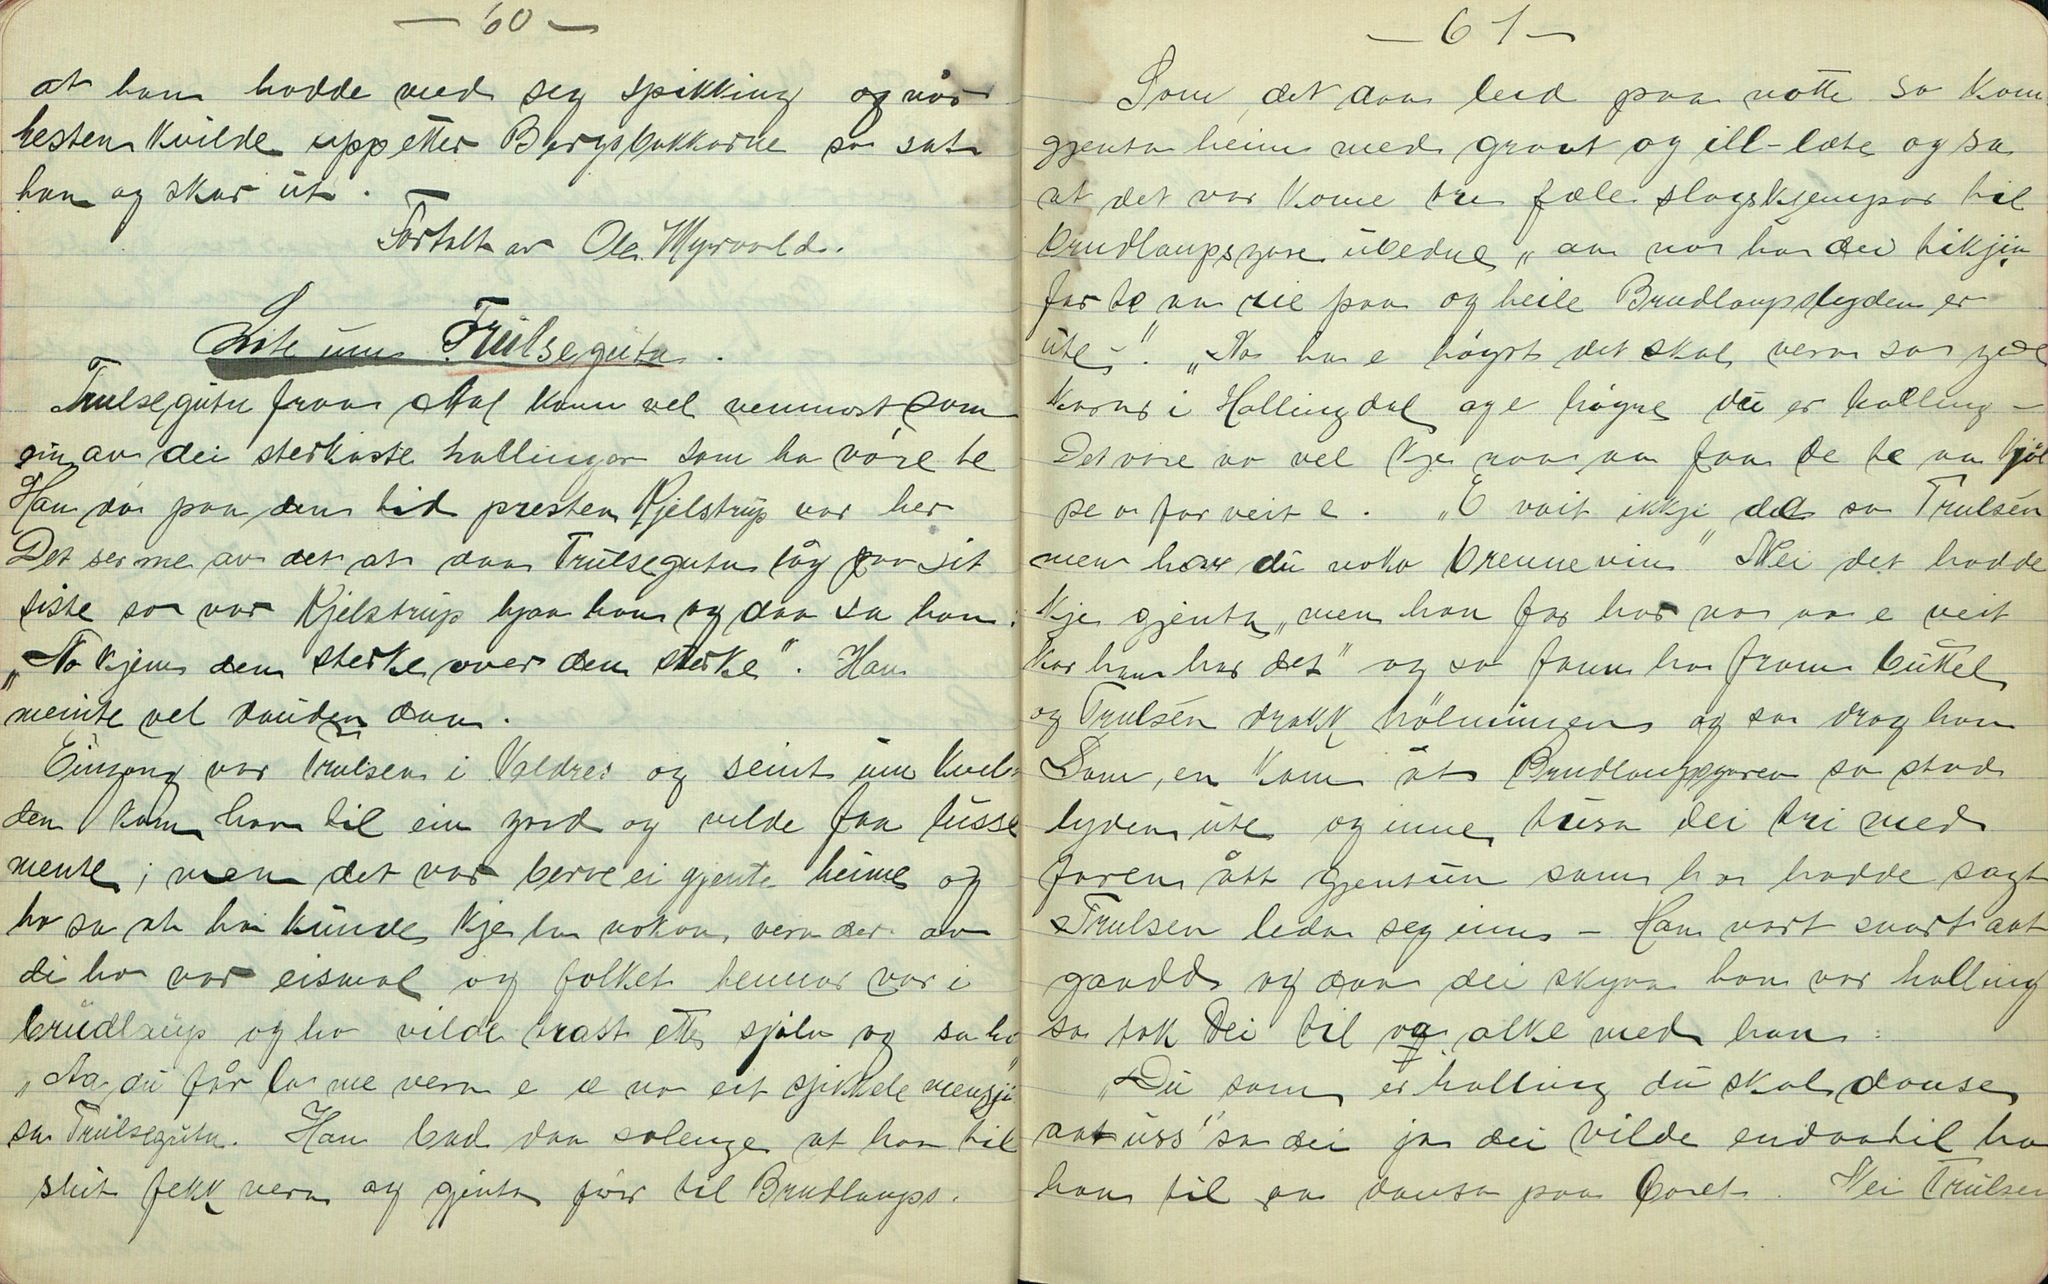 — 60 —
at han hadde med seg spikking og når
hesten kvilde upp etter Bergsbakkarne so sat
han og skar ut.
Fortalt av Ola Myrvold.
Lite um Trulseguten.
Trulseguten fraa Aal kann vel nemnast som
ein av dei sterkaste hallingar som ha vore te
Han var paa den tid presten Kjelstrup var her
Det ser me av det at daa Trulseguten låg paa sit
siste so var Kjelstrup hjaa han og daa sa han:
„No kjem den sterke over den sterke". Han
meinte vel dauden daa.
Eingong var Trulsen i Valdres og seint um kvel-
den kom han til ein gard og vilde faa husse
mente; men det var berre ei gjente heime og
ho sa at ho kunde kje ha nokon vera der av
di ho var eismal og folket hennar var i
brudlaup og ho vilde trast ette sjølv og sa ho
„Aa du får la me vera e æ no eit sjikkele mensje
sa Trulseguten. Han bad daa solenge at han til
slut fekk vera og gjenta for til Brudlaups.
— 61 —
Som det daa leid paa notte so kom
gjenta heim med graat og ill-læte og sa
at det var kome tre fæle slagskjempor til
brudlaupsgare ubedne „aa no ha dei tikji
far te aa rie paa og heile Brudlaupslyden er
ute –". „No ha e høgrt det skal vera so gode
karar i Hallingdal og e høgre du er halling –
Det vore no vel kje raa aa faa de te aa hjøl
pe o far veit e. „E vait ikkje det sa Trulsen
men har du noko brennevin" Nei det hadde
kje gjenta, „men han far har no aa e veit
kor han har det" og so fann ho fram buttel
og Trulsen drakk hølmingen og so drog han
Som en kom åt Brudlaupsgaren so stod
lyden ute og inne tusa dei tri med
faren åt gjentun som ho hadde sagt
Trulsen leda seg inn – Han vart snart aat
gaadd og daa dei skyna han var halling
so tok dei til og alke med han:
„Du som er halling du skal danse
aat uss" sa dei ja dei vilde endaatil ha
han til aa dansa paa boret. Nei Trulsen